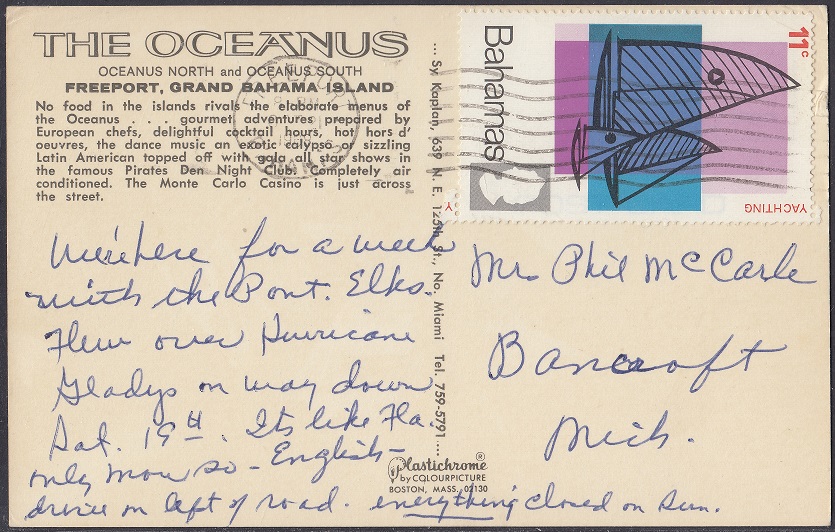 THE OCEANUS
OCEANUS NORTH and OCEANUS SOUTH
FREEPORT, GRAND BAHAMA ISLAND
No food in the islands rivals the elaborate menus of
the Oceanus . . . gourmet adventures prepared by
European chefs, delightful cocktail hours, hot hors d'
oeuvres, the dance music an exotic calypso or sizzling
Latin American topped off with gala all star shows in
the famous Pirates Den Night Club. Completely air
conditioned. The Monte Carlo Casino is just across
the street.
We're here for a week
with the Pont. Elks.
Flew over Hurricane
Gladys on way down
Sat. 19th. Its like Fla.
only more so - English -
drive on left of road. everything closed on Sun.
... Sy Kaplan, 639 N. E. 125th St., No. Miami Tel. 759-5791 ...
Plastichrome®
by COLOURPICTURE
BOSTON, MASS. 02130
Bahamas
11c
YACHTING
Y
FREEPORT
Mrs Phil McCarle
Bancroft
Mich.